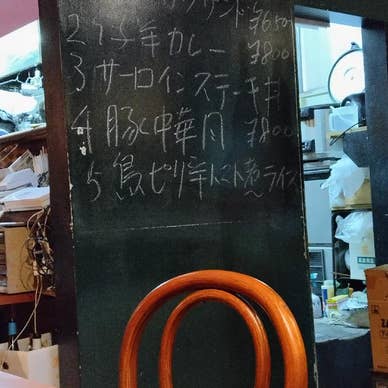 サンド ¥650
2 仔羊カレー ¥800
3 サーロインステーキ丼
4 豚中華丼 ¥800
5 鳥ピリ辛トマト煮ライス